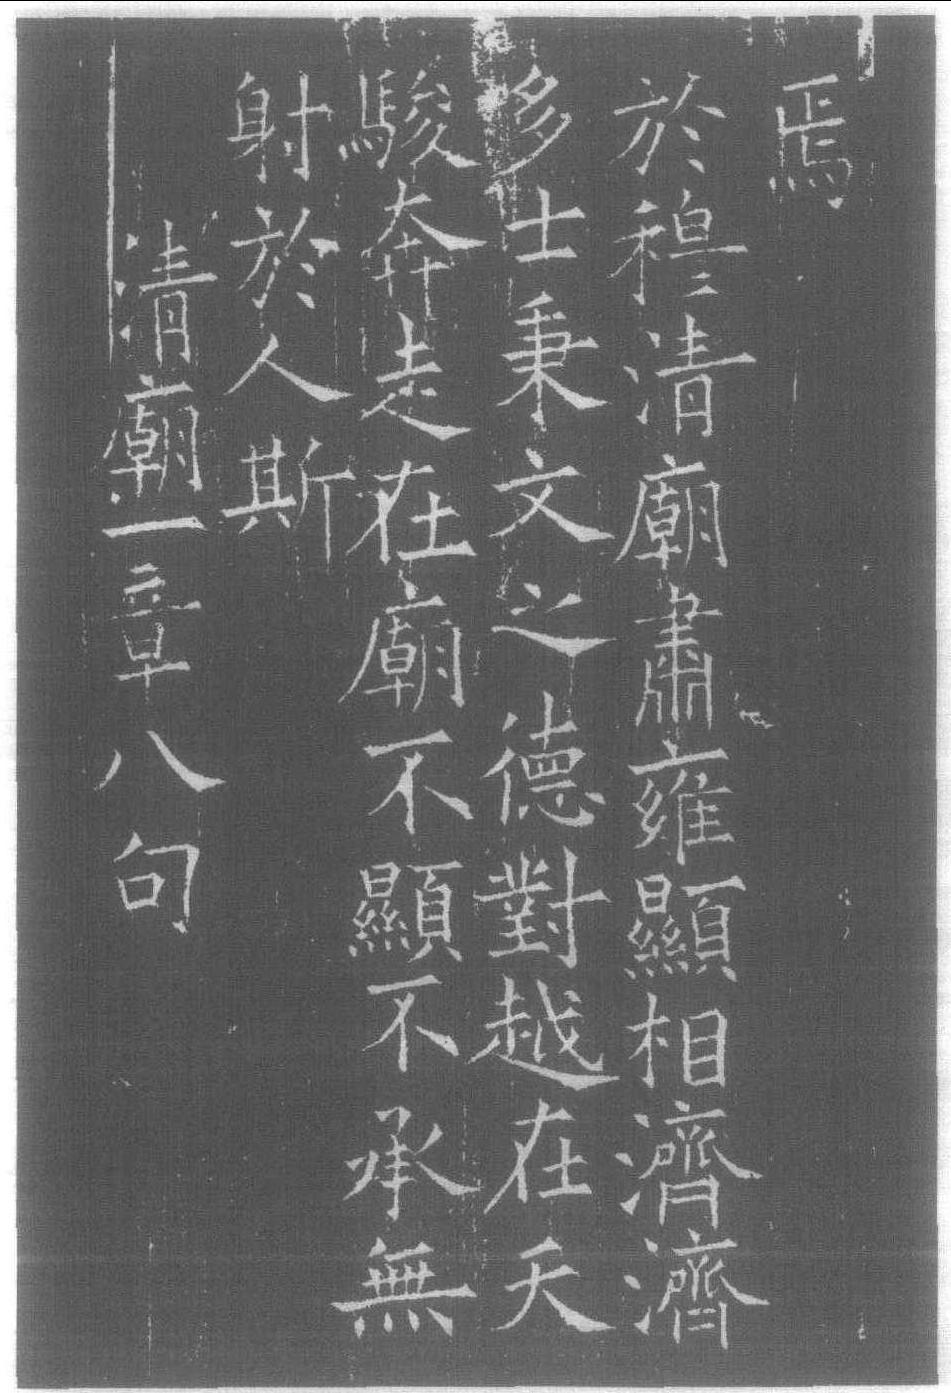 焉
於穆清廟肅雍顯相濟濟
多士秉文之德對越在天
駿奔走在廟不顯不承無
射於人斯
清廟一章八句